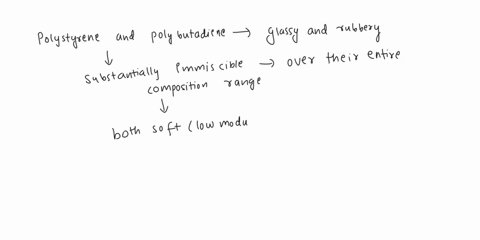 Polystyrene and polybutadiene → glassy and rubbery
↓
Substantially Immiscible → over their entire
composition range
↓
both soft (low modu